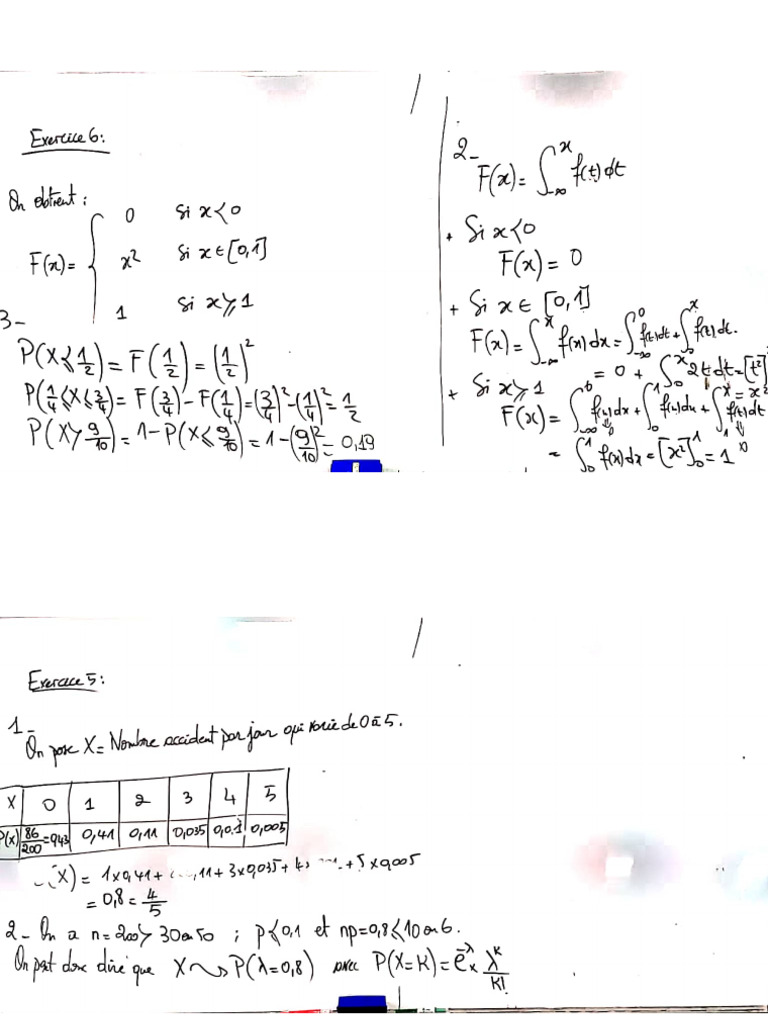 Exercice 6:
On obtient :
F(x) = { 0 si x < 0
x² si x ∈ [0,1]
1 si x ⩾ 1
3-
P(X ⩽ 1/2) = F(1/2) = (1/2)²
P(1/4 < X ⩽ 3/4) = F(3/4) - F(1/4) = (3/4)² - (1/4)² = 1/2
P(X > 9/10) = 1 - P(X ⩽ 9/10) = 1 - (9/10)² = 0,19
2-
F(x) = ∫_{-∞}^{x} f(t) dt
+ Si x < 0
F(x) = 0
+ Si x ∈ [0,1]
F(x) = ∫_{-∞}^{x} f(x) dx = ∫_{-∞}^{0} f(t) dt + ∫_{0}^{x} f(t) dt.
= 0 + ∫_{0}^{x} 2t dt = [t²]
= x²
+ Si x ⩾ 1
F(x) = ∫_{-∞}^{0} f(x) dx + ∫_{0}^{1} f(x) dx + ∫_{1}^{x} f(t) dt
= ∫_{0}^{1} f(x) dx = [x²]_{0}^{1} = 1
Exercice 5:
1-
On pose X = Nombre accident par jour qui varie de 0 à 5.
X 0 1 2 3 4 5
P(x) 86/200 = 0,43 0,41 0,11 0,035 0,01 0,005
X) = 1 x 0,41 + ,11 + 3 x 0,035 + 4 + 5 x 0,005
= 0,8 = 4/5
2- On a n = 200 > 30 ou 50 ; p ⩽ 0,1 et np = 0,8 ⩽ 10 ou 6.
On peut donc dire que X ↝ P(λ = 0,8) avec P(X = K) = e^{-λ} x λ^K / K!